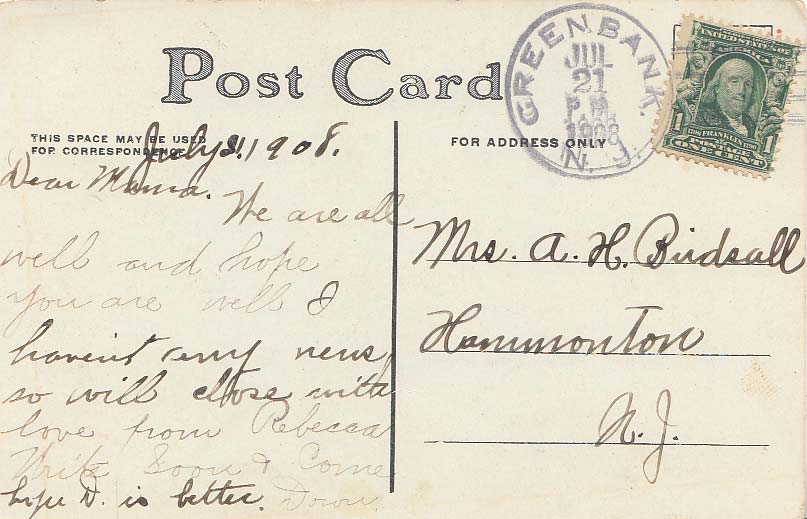 Post Card
THIS SPACE MAY BE USED
FOR CORRESPONDENCE
FOR ADDRESS ONLY
GREENBANK.
JUL
21
P.M.
1908
N. J.
UNITED STATES OF
AMERICA
1 FRANKLIN 1
ONE CENT
July 21. 1908.
Dear Mama.
We are all
well and hope
you are well I
haven't any news
so will close with
love from Rebecca
Write Soon & Come
Down.
hope D. is better.
Mrs. A. H. Birdsall
Hammonton
N. J.